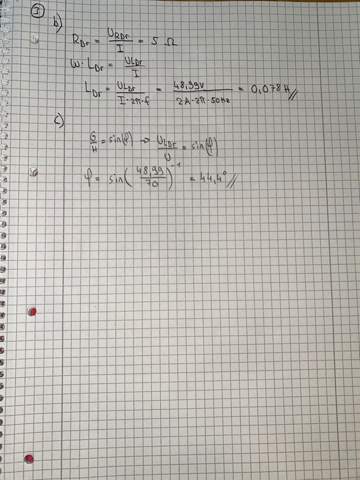 I
b)
R_Dr = U_RDr / I = 5 Ω
W · L_Dr = U_LDr / I
L_Dr = U_LDr / (I · 2π · f) = 48,99V / (2A · 2π · 50Hz) = 0,078 H //
c)
G/H = sin(φ) → U_LDr / U = sin(φ)
φ = sin(48,99 / 70)^-1 = 44,4° //